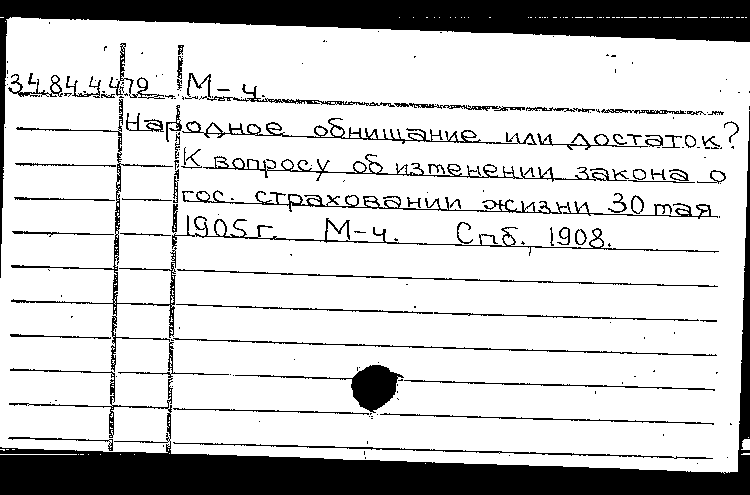 34.84.4.479 М-ч.
Народное обнищание или достаток?
К вопросу об изменении закона о
гос. страховании жизни 30 мая
1905 г. М-ч. Спб., 1908.